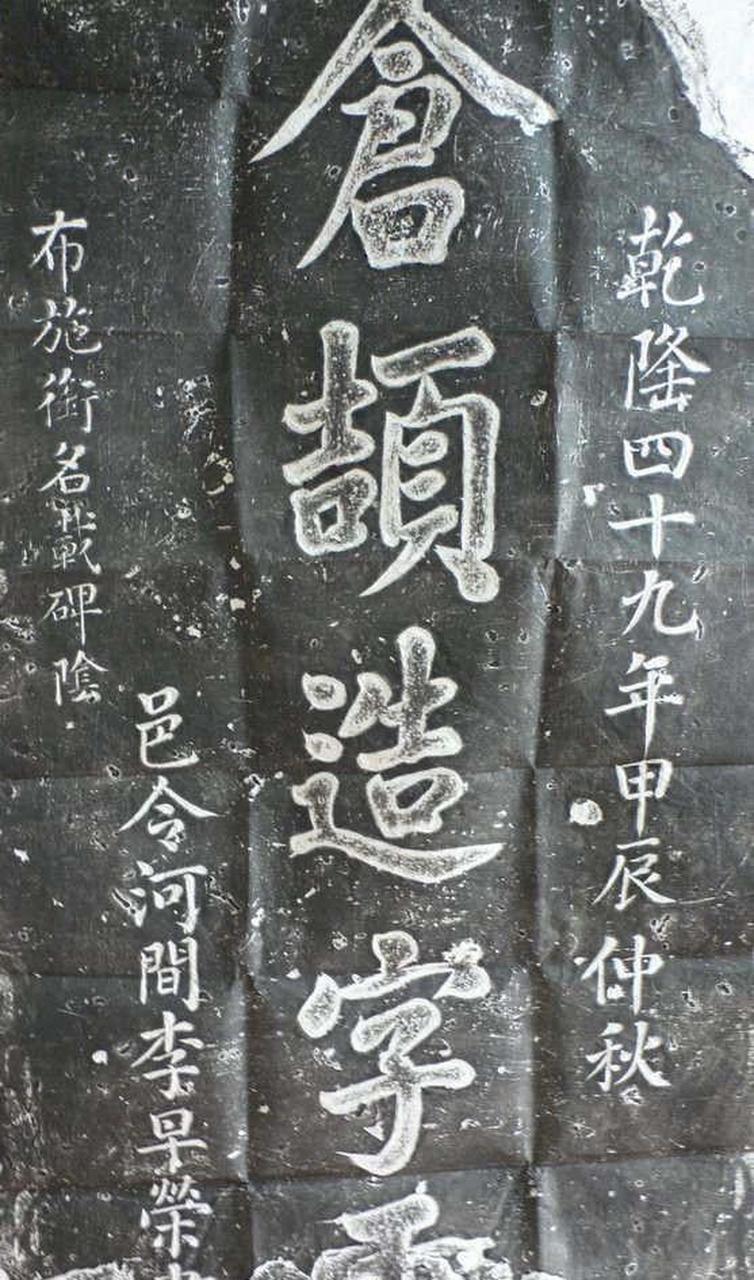 乾隆四十九年甲辰仲秋
倉頡造字
邑令河間李早榮
布施銜名並戰碑陰